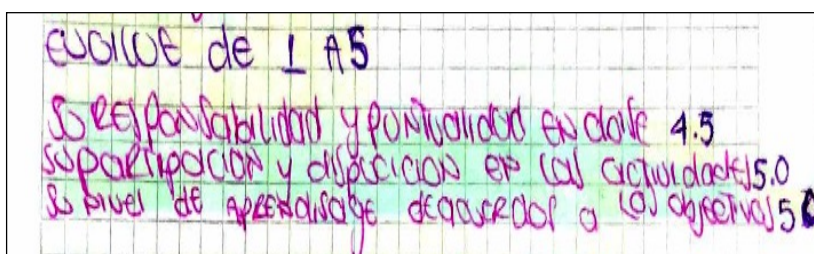 EVALUE de 1 A 5
SU RESPONSabilidad y PUNTUalidad EN claSe 4.5
SU participacion y disPocicion en las actividades 5.0
SU nivel de APRENdisaje deacuerdo a los objectivos 5